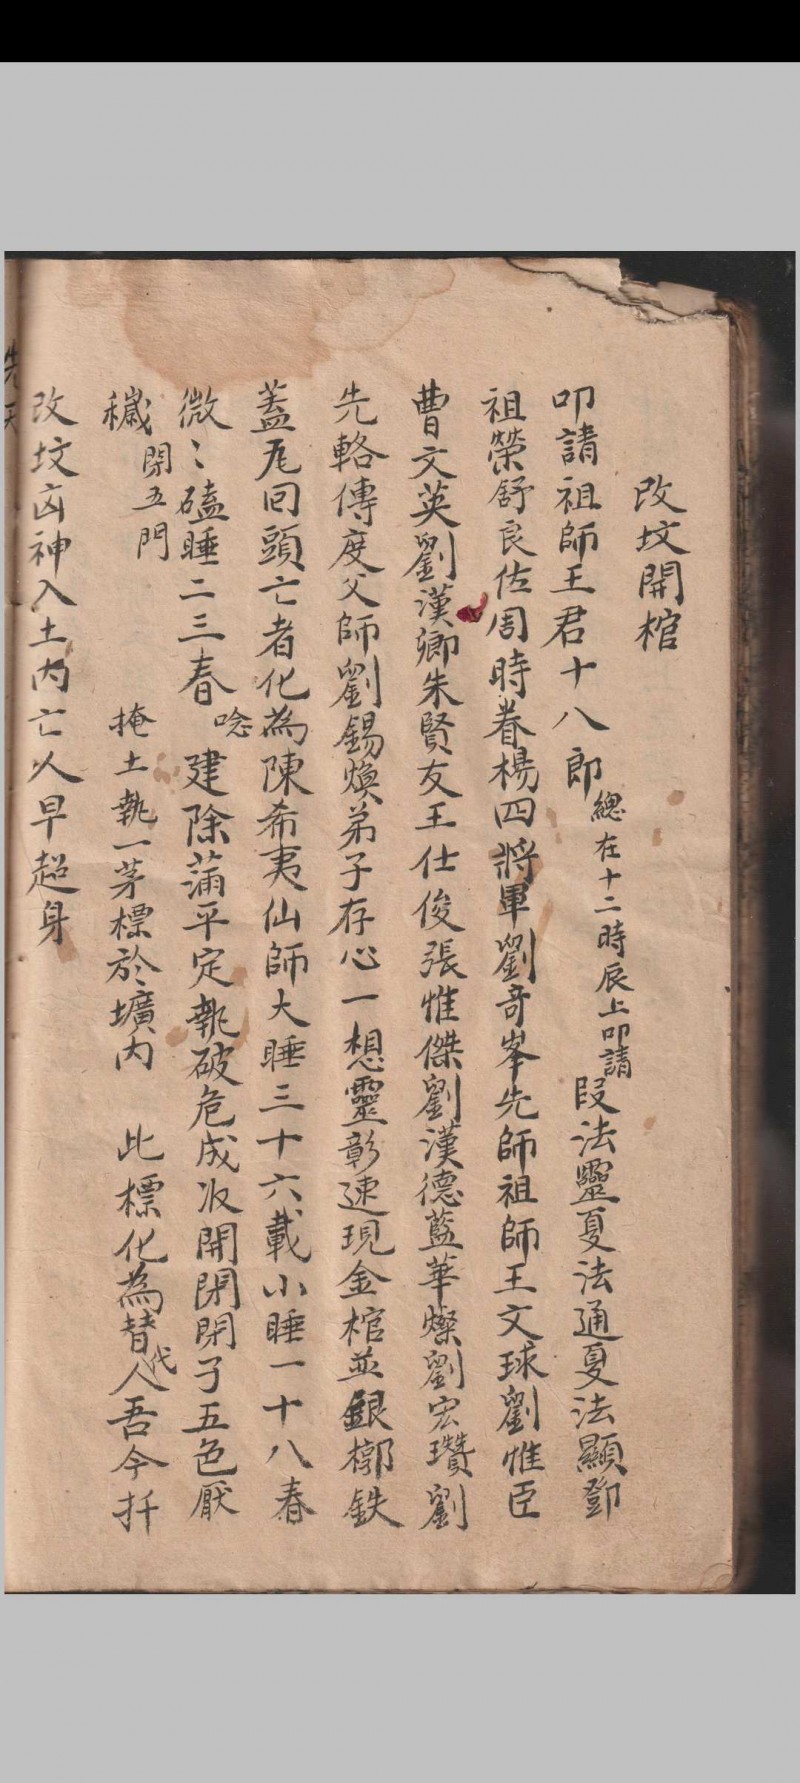 改坟開棺
叩請祖師王君十八郎總在十二時辰上叩請段法靈夏法通夏法顯鄧
祖榮舒良佐周時眷楊四將軍劉奇峯先師祖師王文球劉惟臣
曹文英劉漢卿朱賢友王仕俊張惟傑劉漢德藍華燦劉宏瓚劉
先輅傳度父師劉錫煥弟子存心一想靈彰速現金棺並銀槨鉄
蓋瓦回頭亡者化為陳希夷仙師大睡三十六載小睡一十八春
微〻磕睡二三春 唸建除滿平定執破危成收開閉閉了五色厭
穢閉五門 掩土執一茅標於壙内 此標化為替代人吾今扦
改坟凶神入土内亡人早超身
先天